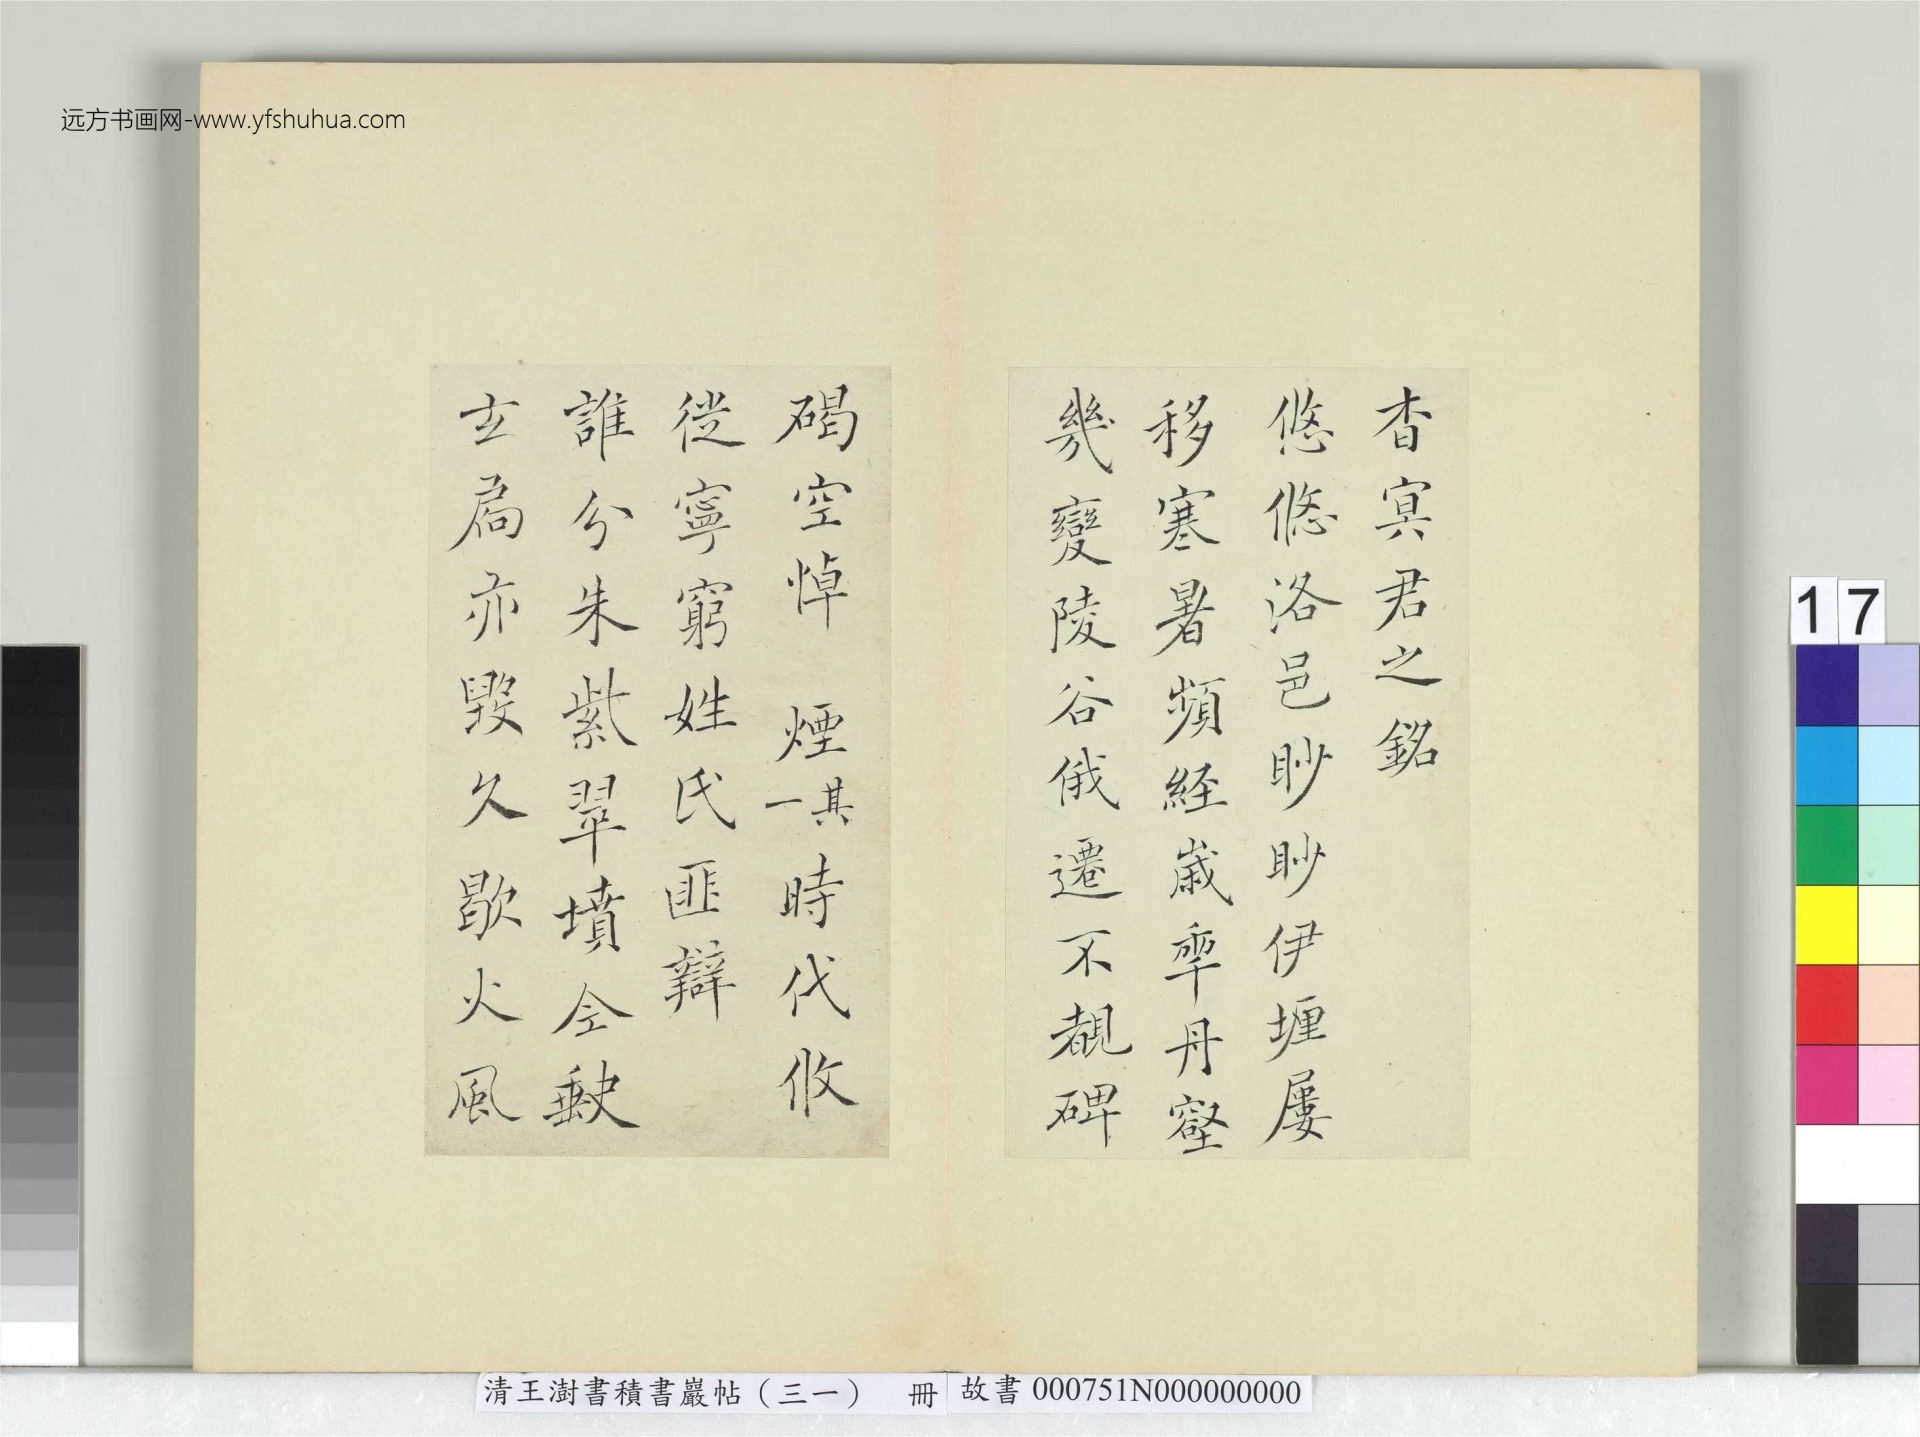 杳冥君之銘
悠悠洛邑眇眇伊堰屢
移寒暑頻經歲年丹壑
幾變陵谷俄遷不覩碑
碣空悼 煙其一時代攸
從寧窮姓氏匪辯
誰分朱紫翠墳全缺
玄扃亦毀久歇火風
远方书画网-www.yfshuhua.com
17
清王澍書積書巖帖（三一） 冊
故書 000751N000000000